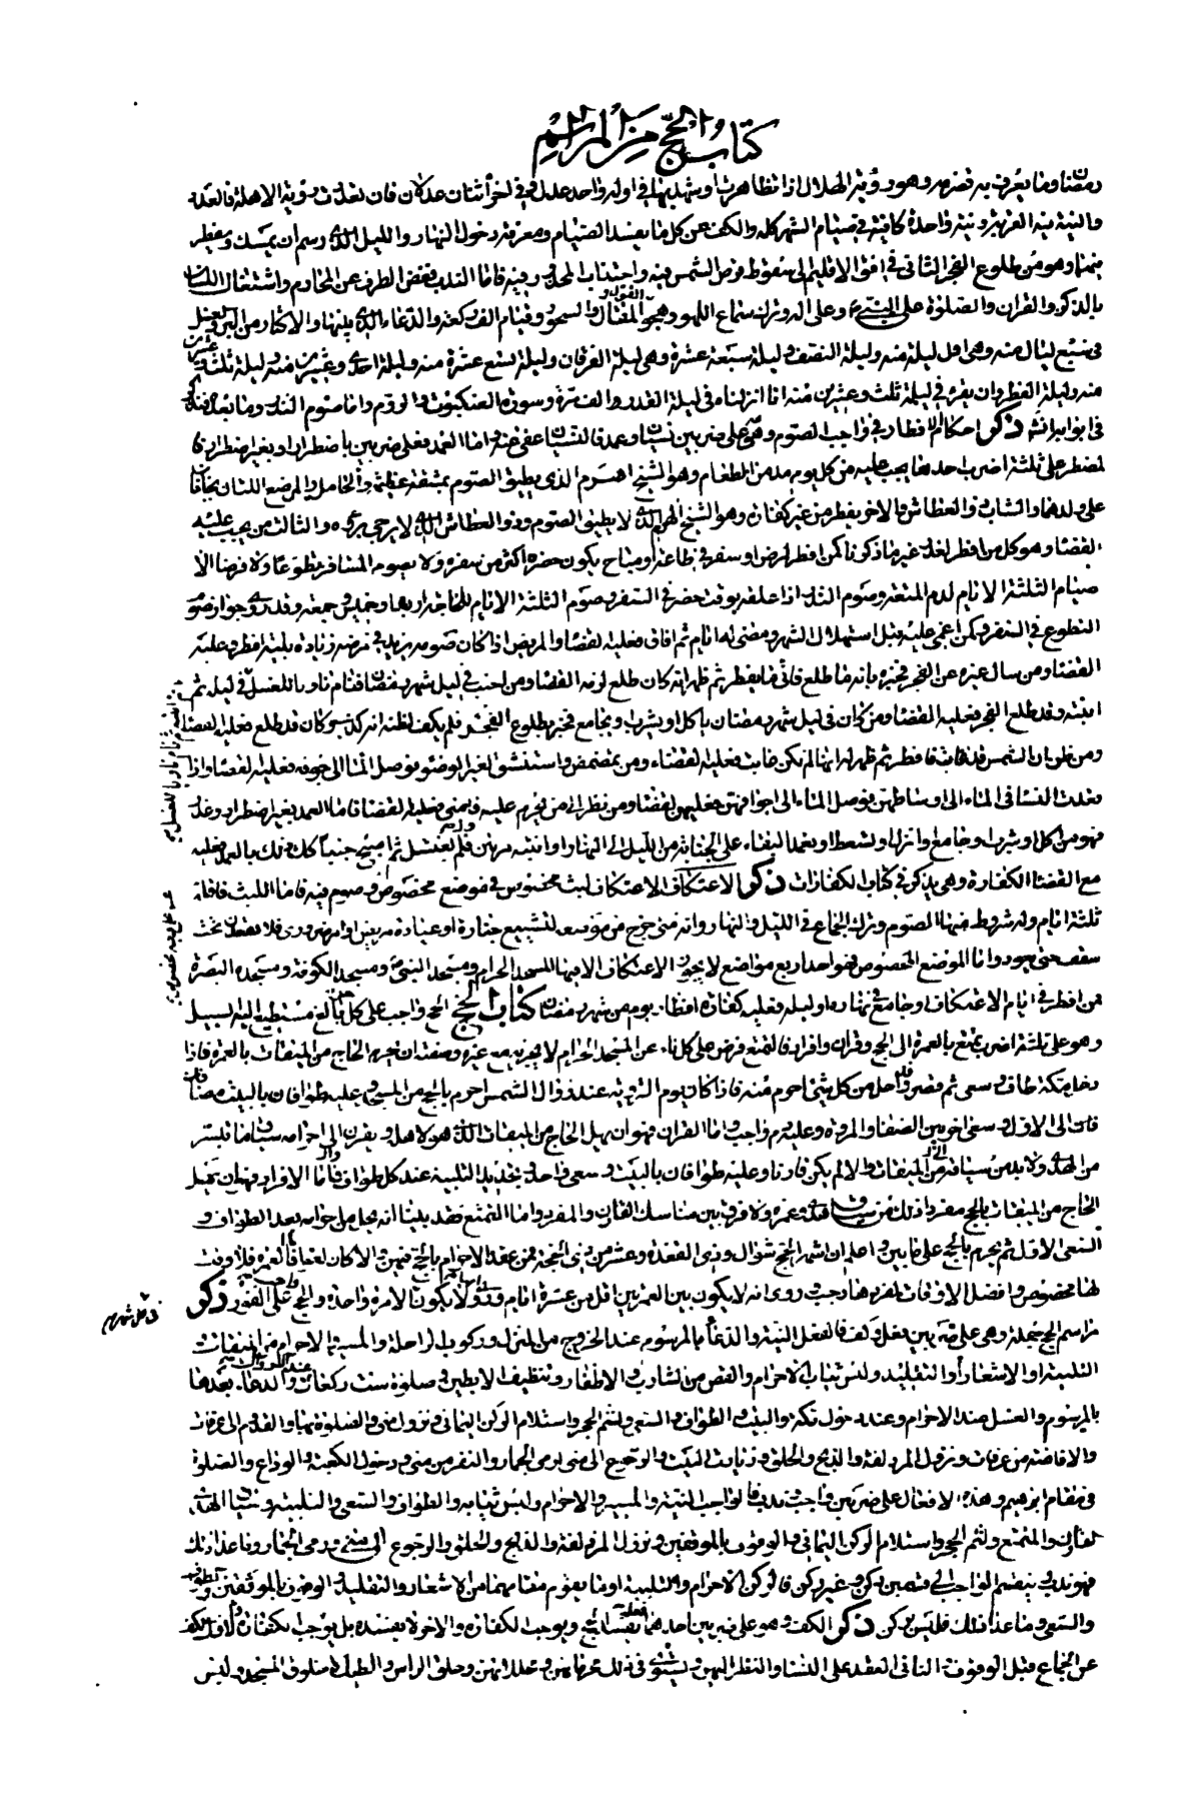 كتاب الحج من المراسم
رمضان وما يعرف به تصرمه وهو رؤية الهلال اذا تظاهرت او شهد بها في اوله واحد عدل وفي اخره اثنان عدلان فان تعذرت رؤية الاهلة فالعدد
والنية نية القربة ونية واحدة كافية في صيام الشهر كله والكف عن كل ما يفسد الصيام ومعرفة دخول النهار والليل الذي رسم ان يمسك ويفطر
بهما وهو من طلوع الفجر الثاني في افق الاقليم الى سقوط قرص الشمس فيه واجتناب المحذور فيه فاما الندب فغض الطرف عن المحارم واشتغال اللسان
بالذكر والقران والصلوة على النبي وعلى اله وترك سماع اللهو وهجر المقال والسحور وقيام الف ركعة والدعاء الذي يليها والاكثار من البر والغسل
في سبع ليال منه وهي اول ليلة منه وليلة النصف وليلة سبعة عشرة وهي ليلة الفرقان وليلة تسع عشرة منه وليلة احدى وعشرين منه وليلة ثلث وعشرين
منه وليلة الفطر وان يقرء في ليلة ثلث وعشرين منه انا انزلناه في ليلة القدر الف مرة وسورة العنكبوت والروم واما صوم النذر وما بعده فيذكر
في ابوابه انشه ذكر احكام الافطار في واجب الصوم وهي على ضربين نسيان وعمد فالنسيان عفى عنه واما العمد فعلى ضربين باضطرار او بغير اضطرار فا
لمضطر على ثلثة اضرب احدها يجب عليه من كل يوم مد من الطعام وهو الشيخ الهرم الذي يطيق الصوم بمشقة عظيمة والحامل والمرضع اللتان يخافان
على ولدهما والشاب ذو العطاش والاخر يفطر من غير كفارة وهو الشيخ الهرم الذي لا يطيق الصوم وذو العطاش الذي لا يرجى برءه والثالث من يجب عليه
القضاء وهو كل من افطر لغلة غير ما ذكرنا كمن افطر لمرض او سفر في طاعة او مباح يكون حضره اكثر من سفره ولا يصوم المسافر تطوعا ولا فرضا الا
صيام الثلثة الايام لدم المتعة وصوم النذر اذا علقه بوقت حضر في السفر وصوم الثلثة الايام للحاجة اربعا وخميس وجمعة وقد روى جواز صوم
التطوع في السفر وكمن اغمي عليه قبل استهلال الشهر ومضى له ايام ثم افاق فعليه القضاء والمريض اذا كان صومه يزيد في مرضه زيادة بينة افطر وعليه
القضاء ومن سال غيره عن الفجر فخبره بانه ما طلع فاتى ما يفطر ثم ظهر انه كان طلع لزمه القضاء ومن اجنب في ليل شهر رمضان فنام ناويا للغسل في ليله ثم
انتبه وقد طلع الفجر فعليه القضاء ومن كان في ليل شهر رمضان ياكل او يشرب او يجامع فخبر بطلوع الفجر فلم يكف لظنه انه كذب وكان قد طلع فعليه القضاء
ومن ظن ان الشمس قد غابت فافطر ثم ظهر له انها لم تكن غابت فعليه القضاء ومن تمضمض واستنشق لغير الوضوء فوصل الماء الى جوفه فعليه القضاء واذا
قعدت النساء في الماء الى اوساطهن فوصل الماء الى اجوافهن فعليهن القضاء ومن نظر الى من يحرم عليه فامنى فعليه القضاء فاما العمد بغير اضطرار وعذر
فهو من اكل او شرب او جامع او انزل او تسعط او تعمد البقاء على الجنابة من الليل الى النهار او انتبه مرتين فلم يغتسل ثم اصبح جنبا كل ذلك بالعمد فعليه
مع القضاء الكفارة وهي يذكر في كتاب الكفارات ذكر الاعتكاف الاعتكاف لبث مخصوص في موضع مخصوص وصوم فيه فاما اللبث فاقله
ثلثة ايام وله شروط منها الصوم وترك الجماع في الليل والنهار وانه متى خرج من موضعه لتشييع جنازة او عيادة مريض او امر ضروري فلا يقعد تحت
سقف حتى يعود واما الموضع المخصوص فهو احد اربع مواضع لا يجوز الاعتكاف الا فيها المسجد الحرام ومسجد النبي ومسجد الكوفة ومسجد البصرة
من افطر في ايام الاعتكاف او جامع في نهاره او ليله فعليه كفارة افطار يوم من شهر رمضان كتاب الحج الحج واجب على كل حر بالغ مستطيع اليه السبيل
وهو على ثلثة اضرب تمتع بالعمرة الى الحج وقران وافراد فالتمتع فرض على كل ناء عن المسجد الحرام لا يجزيه مع غيره وصفته ان يحرم الحاج من الميقات بالعمرة فاذا
دخل مكة طاف وسعى ثم قصر واحل من كل شيء احرم منه فاذا كان يوم التروية عند زوال الشمس احرم بالحج من المسجد وعليه طوافان بالبيت مضافان
الى الاول وسعي اخر بين الصفا والمروة وعليه دم واجب واما القران فهو ان يهل الحاج من الميقات الذي هو لاهله ويقرن الى احرامه سياق ما تيسر
من الهدي ولا بد من سياقه من الميقات والا لم يكن قارنا وعليه طوافان بالبيت وسعي واحد وتجديد التلبية عند كل طواف فاما الافراد فهو ان يهل
الحاج من الميقات بالحج مفردا ذلك من سياق هدي وعمرة ولا فرق بين مناسك القارن والمفرد واما التمتع فقد بينا انه يحل من احرامه بعد الطواف و
السعي الاول ثم يحرم بالحج على ما بين واعلم ان اشهر الحج شوال وذي القعدة وعشر من ذي الحجة فمن عقد الاحرام بالحج فيهن والا كان لغيا فاما العمرة فلا وقت
لها مخصوص وافضل الاوقات لمفردها رجب وروى انه لا يكون بين العمرتين اقل من عشرة ايام وروى لا يكون الا مرة واحدة والحج على الفور ذكر
مراسم الحج جملة وهي على ضربين فعل وكف فالفعل النية والدعاء المرسوم عند الخروج من المنزل وركوب الراحلة والمسير والاحرام من الميقات
التلبية او الاشعار او التقليد ولبس ثياب الاحرام والقص من الشارب والاظفار وتنظيف الابطين وصلوة ست ركعات والدعاء بعدها
بالمرسوم والغسل عند الاحرام وعند دخول مكة والبيت والطواف والسعي ولثم الحجر واستلام الركن اليماني ونزول منى والصلوة بها والغدو الى عرفات
والافاضة من عرفات ونزول المزدلفة والذبح والحلق وزيارة البيت والرجوع الى منى ورمي الجمار والنفر من منى ودخول الكعبة والوداع والصلوة
في مقام ابرهيم وهذه الافعال على ضربين واجب وندب فالواجب النية والمسير والاحرام ولبس ثيابه والطواف والسعي والتلبية وسياق الهدي
للقارن والمتمتع ولثم الحجر واستلام الركن اليماني والوقوف بالموقفين ونزول المزدلفة والذبح والحلق والرجوع الى منى ورمي الجمار وما عدا ذلك
فهو ندب وينقسم الواجب الى قسمين ركن وغير ركن فالركن الاحرام والتلبية او ما يقوم مقامها من الاشعار والتقليد والوقوف بالموقفين والطواف
والسعي وما عدا ذلك فليس بركن ذكر الكف وهو على ضربين احدهما فعله يفسد الحج ويوجب الكفارة والاخر لا يفسده بل يوجب الكفارة فالاول الكف
عن الجماع قبل الوقوف الثاني العقد على النساء والنظر اليهن ويستوى في ذلك محرماتهن ومحللاتهن وحلق الراس والطيب الا خلوق المسجد ولبس